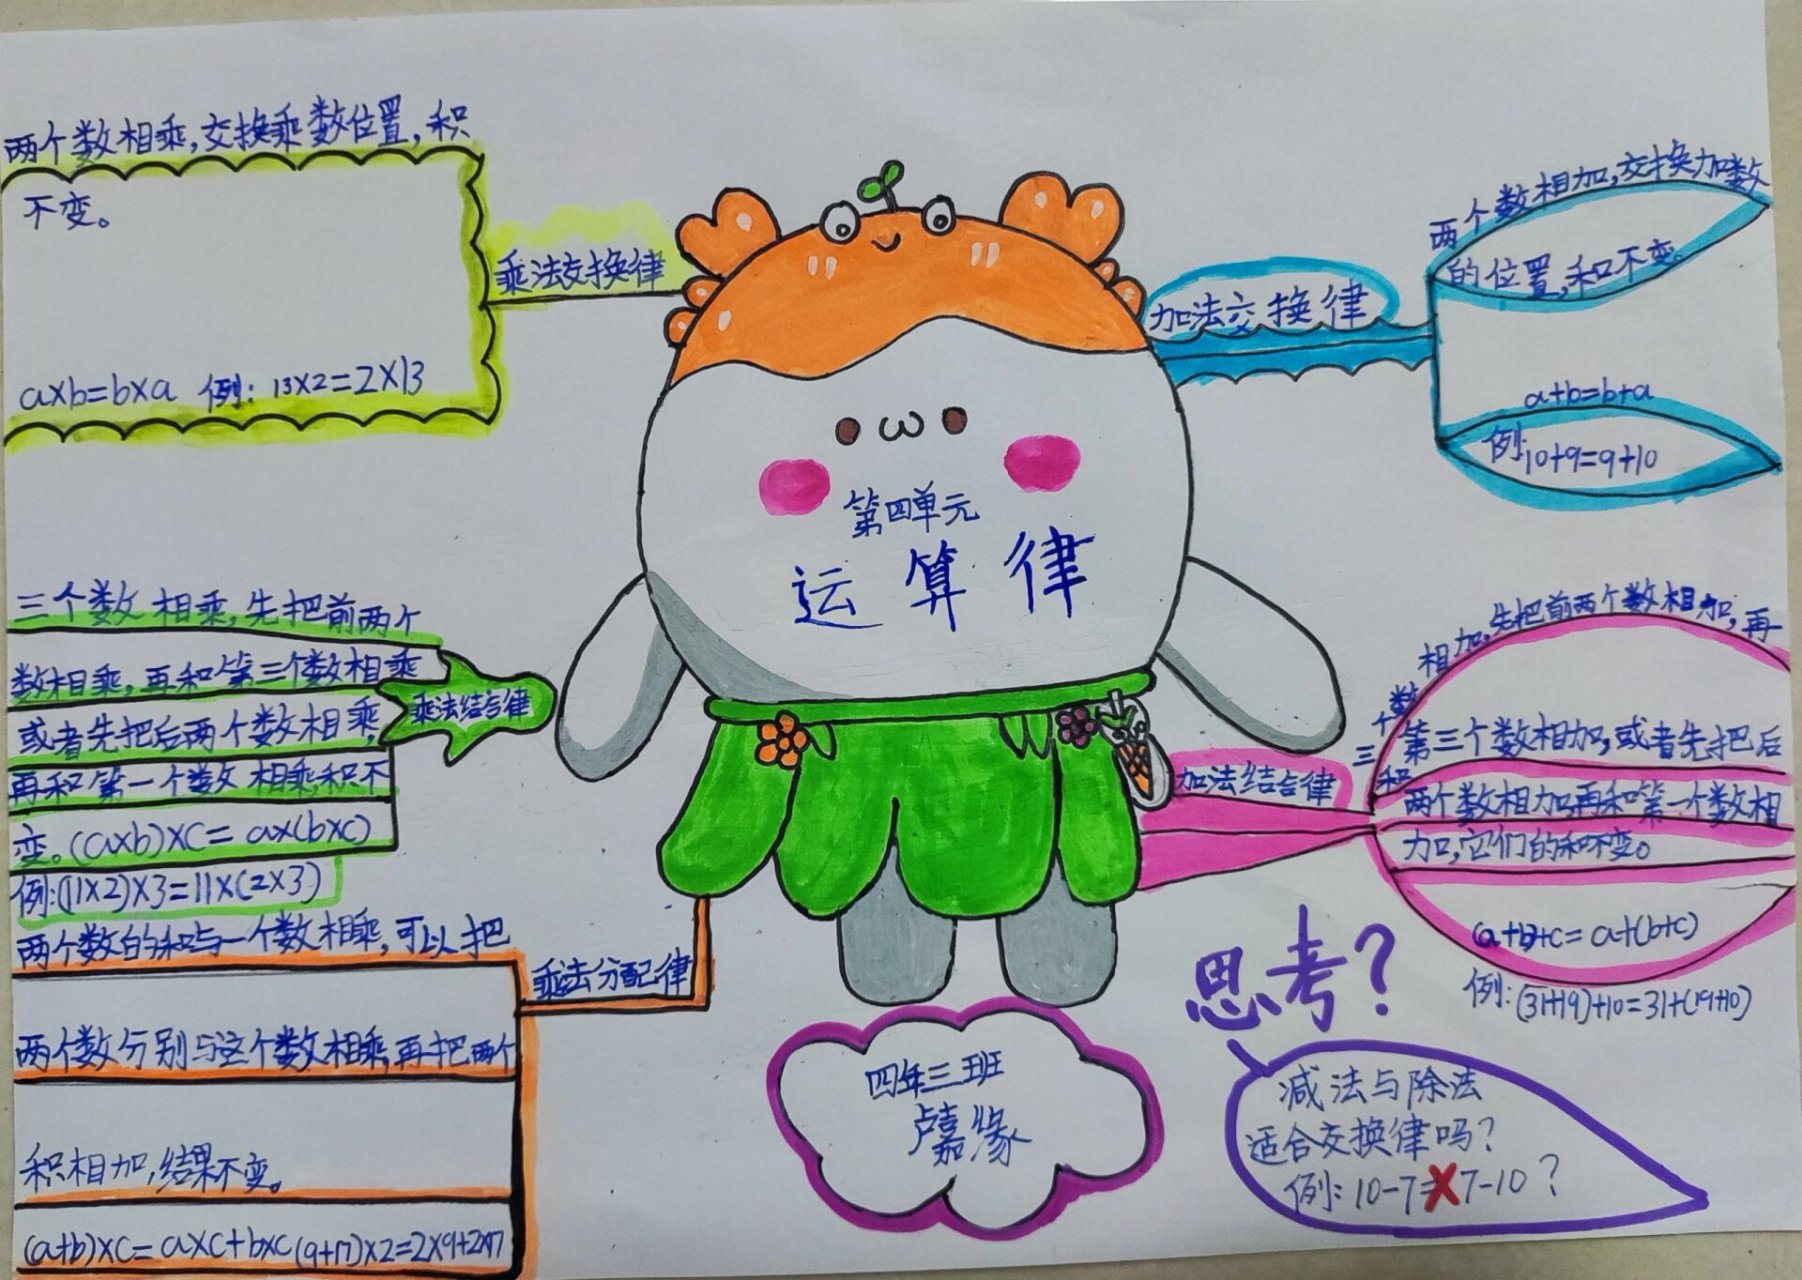 第四单元
运算律
两个数相乘,交换乘数位置,积
不变。
a×b=b×a 例:13×2=2×13
乘法交换律
三个数相乘,先把前两个
数相乘,再和第三个数相乘
或者先把后两个数相乘,
再和第一个数相乘,积不
变。(a×b)×c=a×(b×c)
例:(11×2)×3=11×(2×3)
乘法结合律
两个数的和与一个数相乘,可以把
两个数分别与这个数相乘,再把两个
积相加,结果不变。
(a+b)×c=a×c+b×c (9+17)×2=2×9+2×17
乘法分配律
加法交换律
两个数相加,交换加数
的位置,和不变。
a+b=b+a
例:10+9=9+10
加法结合律
三个数相加,先把前两个数相加,再
和第三个数相加,或者先把后
两个数相加,再和第一个数相
加,它们的和不变。
(a+b)+c=a+(b+c)
例:(31+19)+10=31+(19+10)
思考?
减法与除法
适合交换律吗?
例:10-7=7-10?
四年三班
卢嘉缘